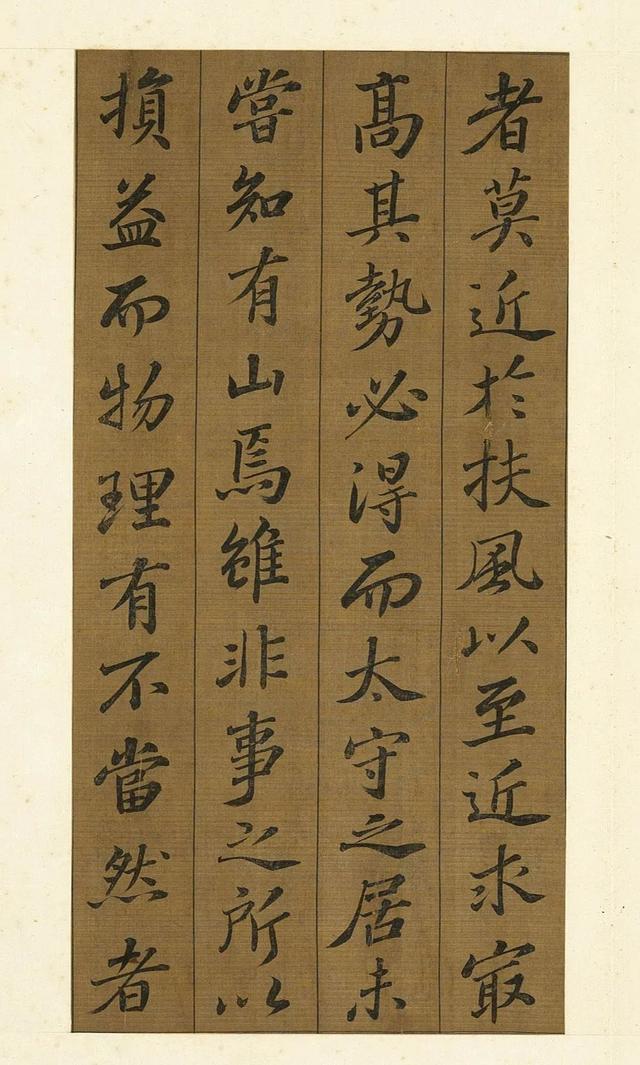 者莫近於扶風以至近求冣
高其勢必得而太守之居未
嘗知有山焉雖非事之所以
損益而物理有不當然者